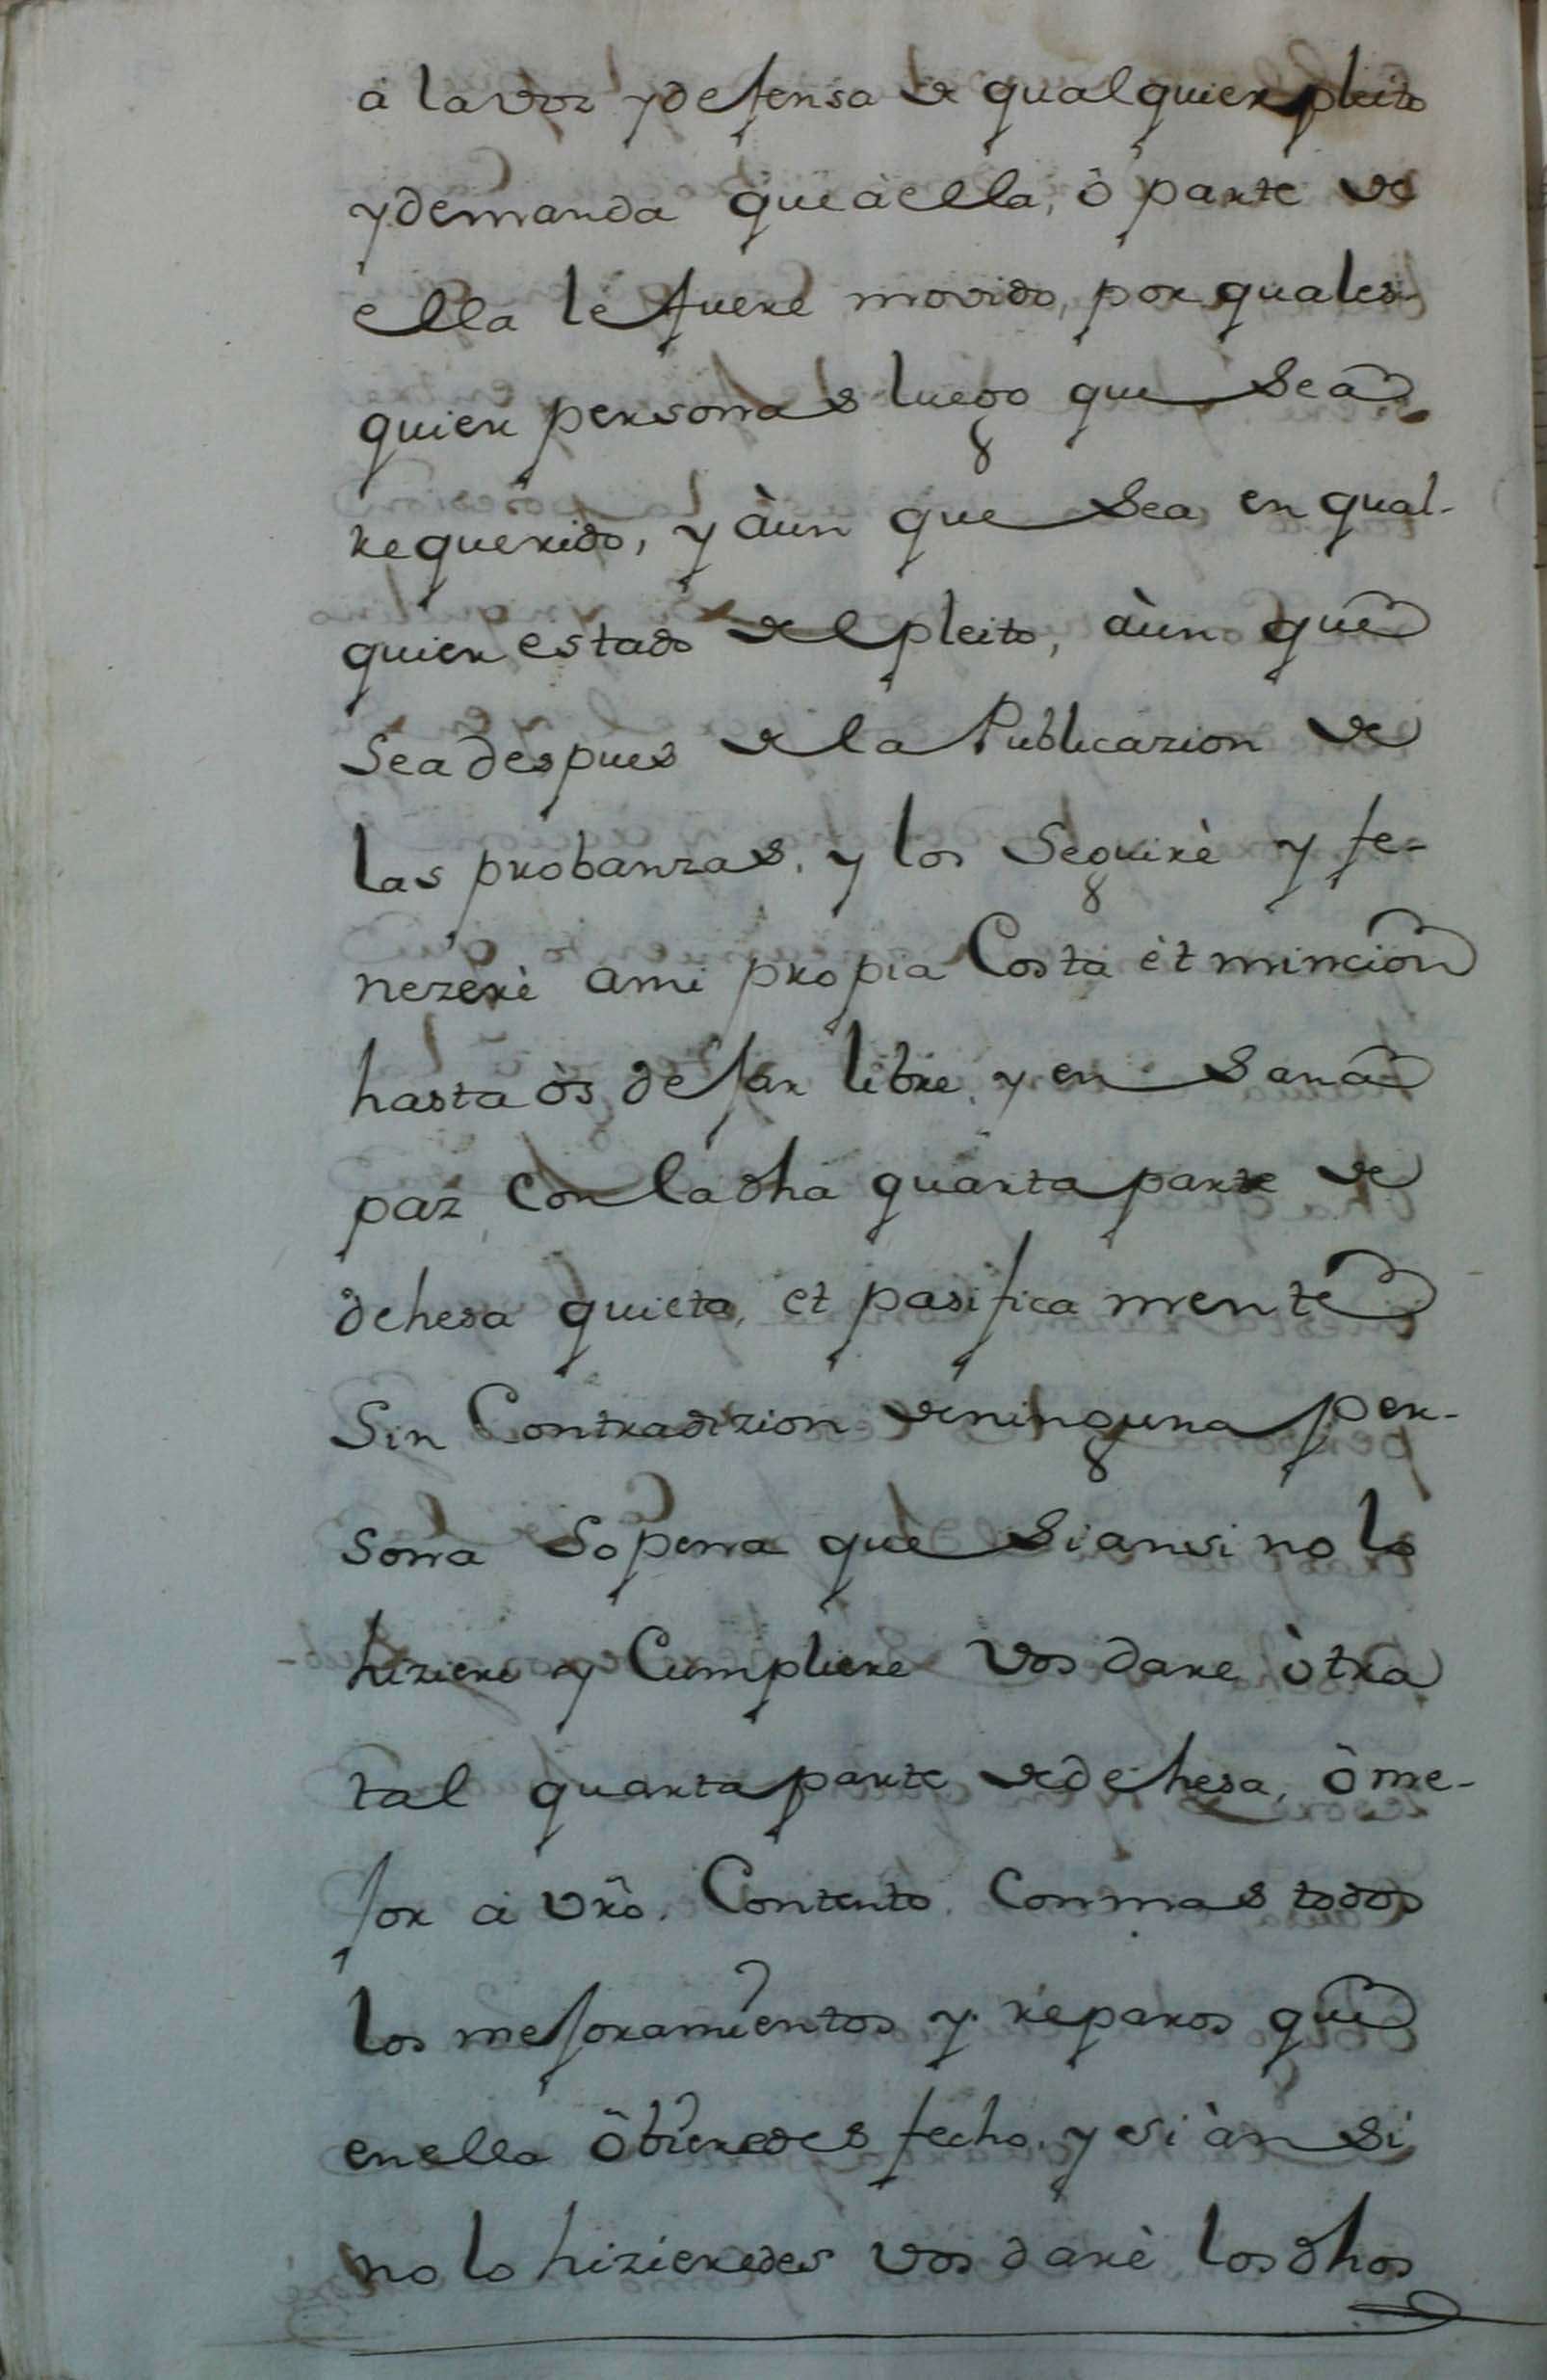 à la voz y defensa de qualquier pleito
y demanda que à ella, ò parte de
ella le fuere movido, por quales-
quier personas luego que sea
requerido, y àun que sea en qual-
quier estado del pleito, àun que
sea despues de la Publicazion de
las probanzas, y los seguirè y fe-
nezerè a mi propia Costa èt mincion
hasta òs defar libre, y en sana
paz, con la dha quarta parte de
dehesa quieta, et pasificamente
Sin Contradizion de ninguna per-
sona so pena que si ansi no lo
hiziere y Cumpliere vos dare òtra
tal quarta parte de dehesa, ò me-
jor à vrô. Contento, con mas todos
los mejoramientos y reparos que
en ella òbieredes fecho, y si ànsi
no lo hizieredes vos darè los dhos